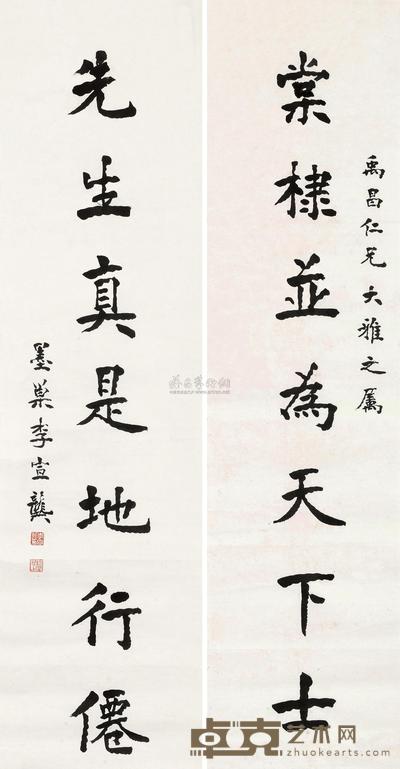 禹昌仁兄大雅之屬
棠棣並為天下士
先生真是地行僊
墨巢李宣龔
卓克艺术网
zhuokearts.com